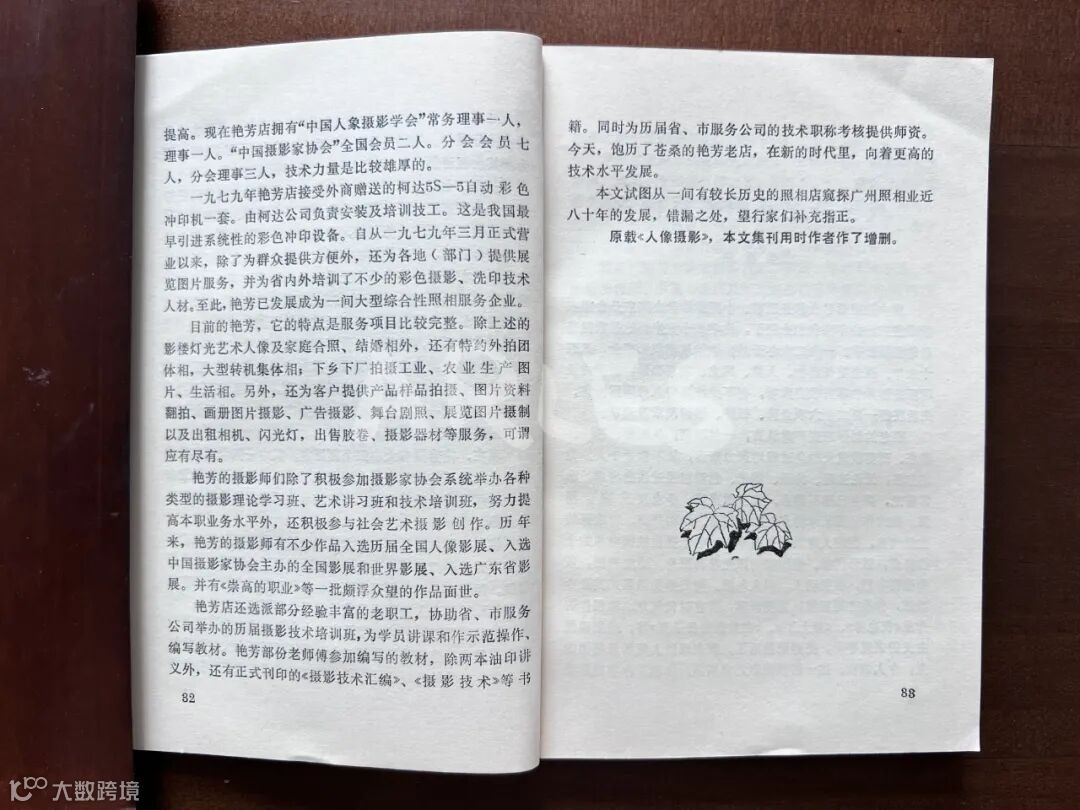 提高。现在艳芳店拥有“中国人象摄影学会”常务理事一人，
理事一人。“中国摄影家协会”全国会员二人。分会会员七
人，分会理事三人，技术力量是比较雄厚的。
一九七九年艳芳店接受外商赠送的柯达5S—5自动彩色
冲印机一套。由柯达公司负责安装及培训技工。这是我国最
早引进系统性的彩色冲印设备。自从一九七九年三月正式营
业以来，除了为群众提供方便外，还为各地（部门）提供展
览图片服务，并为省内外培训了不少的彩色摄影、洗印技术
人材。至此，艳芳已发展成为一间大型综合性照相服务企业。
目前的艳芳，它的特点是服务项目比较完整。除上述的
影楼灯光艺术人像及家庭合照、结婚相外，还有特约外拍团
体相，大型转机集体相；下乡下厂拍摄工业、农业生产图
片、生活相。另外，还为客户提供产品样品拍摄、图片资料
翻拍、画册图片摄影、广告摄影、舞台剧照、展览图片摄制
以及出租相机、闪光灯，出售胶卷、摄影器材等服务，可谓
应有尽有。
艳芳的摄影师们除了积极参加摄影家协会系统举办各种
类型的摄影理论学习班、艺术讲习班和技术培训班，努力提
高本职业务水平外，还积极参与社会艺术摄影创作。历年
来，艳芳的摄影师有不少作品入选历届全国人像影展、入选
中国摄影家协会主办的全国影展和世界影展、入选广东省影
展。并有《崇高的职业》等一批颇浮众望的作品面世。
艳芳店还选派部分经验丰富的老职工，协助省、市服务
公司举办的历届摄影技术培训班，为学员讲课和作示范操作、
编写教材。艳芳部份老师傅参加编写的教材，除两本油印讲
义外，还有正式刊印的《摄影技术汇编》、《摄影技术》等书
82
籍。同时为历届省、市服务公司的技术职称考核提供师资。
今天，饱历了苍桑的艳芳老店，在新的时代里，向着更高的
技术水平发展。
本文试图从一间有较长历史的照相店窥探广州照相业近
八十年的发展，错漏之处，望行家们补充指正。
原载《人像摄影》，本文集刊用时作者作了增删。
83
大数跨境